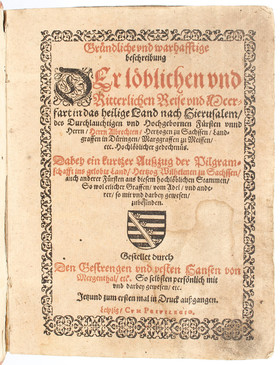 Gründliche vnd warhafftige
beschreibung
DEr löblichen vnd
Ritterlichen Reise vnd Meer-
fart in das heilige Land nach Hierusalem/
des Durchlauchtigen vnd Hochgebornen Fürsten vnnd
Herrn/ Herrn Albrechten/ Hertzogen zu Sachssen/ Land-
graffen in Düringen/ Marggraffen zu Meissen/
etc. Hochlöblicher gedechtnis.
Dabey ein kurtzer Auszug der Pilgram-
schafft ins gelobte Land/ Hertzog Wilhelmen zu Sachssen/
auch anderer Fürsten aus diesem hochlöblichen Stammen/
So wol etlicher Graffen/ vom Adel/ vnd ande-
rer/ so mit vnd darbey gewesen/
zubefinden.
Gestellet durch
Den Gestrengen vnd vesten Hansen von
Mergenthal/ etc. So selbsten persönlich mit
vnd darbey gewesen/ etc.
Jetzund zum ersten mal in Druck außgangen.
Leipzig Cvm Privilegio.